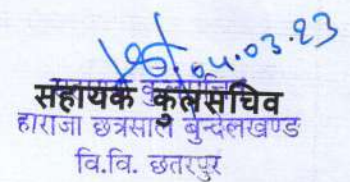 04.03.23
सहायक कुलसचिव
हाराजा छत्रसाल बुन्देलखण्ड
वि.वि. छतरपुर